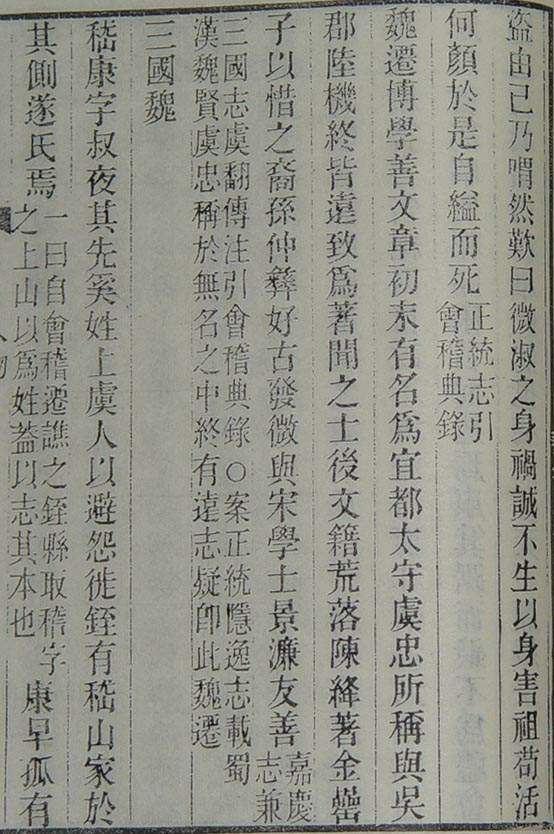 盜由己乃喟然歎曰微淑之身禍誠不生以身害祖苟活
何顏於是自縊而死正統志引
會稽典錄
魏遷博學善文章初未有名爲宜都太守虞忠所稱與吳
郡陸機終皆遠致爲著聞之士後文籍荒落陳絳著金罍
子以惜之裔孫仲彝好古發微與宋學士景濂友善嘉慶
志兼
三國志虞翻傳注引會稽典錄○案正統隱逸志載蜀
漢魏賢虞忠稱於無名之中終有遠志疑卽此魏遷
三國魏
嵇康字叔夜其先奚姓上虞人以避怨徙銍有嵇山家於
其側遂氏焉一曰自會稽遷譙之銍縣取稽字
之上山以爲姓蓋以志其本也康早孤有